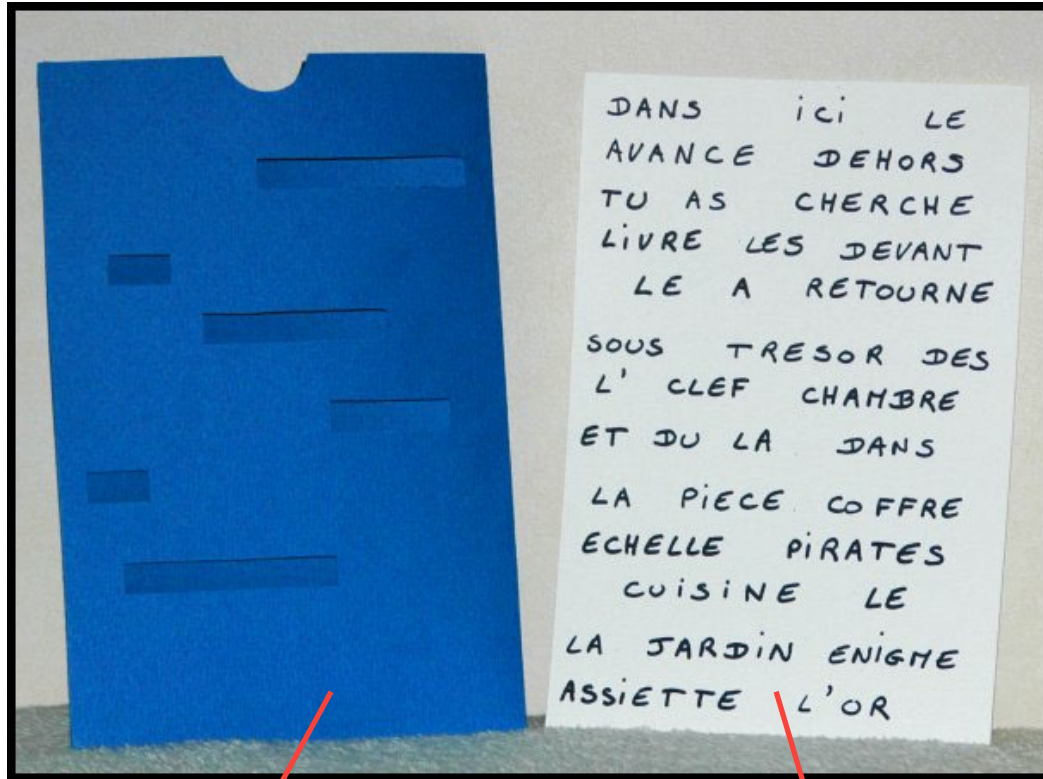 DANS ici LE
AVANCE DEHORS
TU AS CHERCHE
LiVRE LES DEVANT
LE A RETOURNE
SOUS TRESOR DES
L' CLEF CHAMBRE
ET DU LA DANS
LA PiECE COFFRE
ECHELLE PiRATES
CUISINE LE
LA JARDiN ENiGME
ASSiETTE L'OR